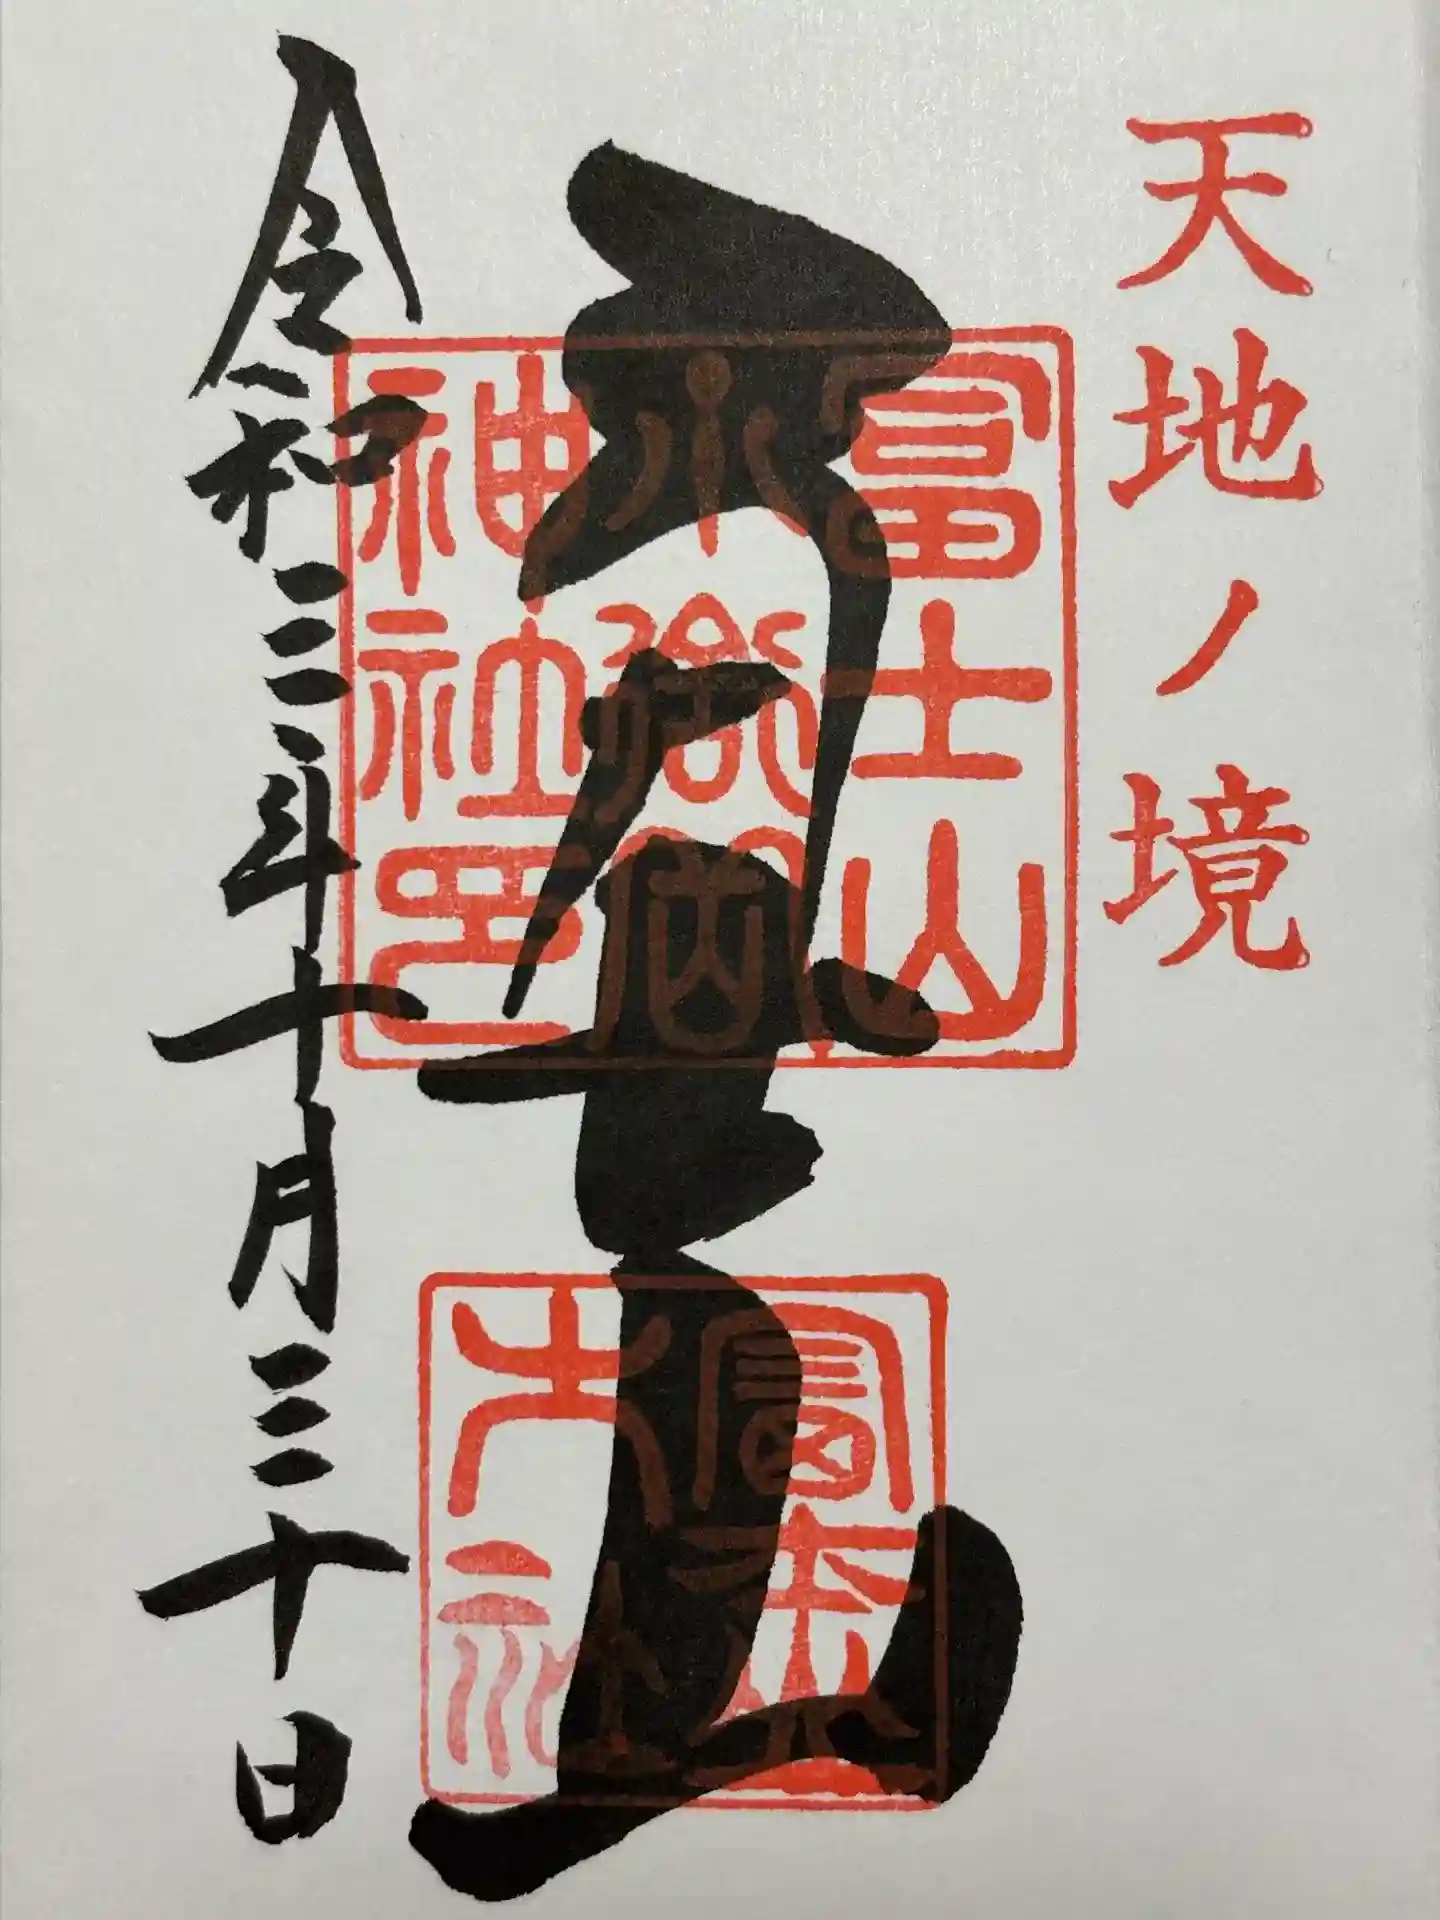 天地ノ境
富士山
小御嶽
神社印
富士山
冨士
大社
令和三年十月三十日